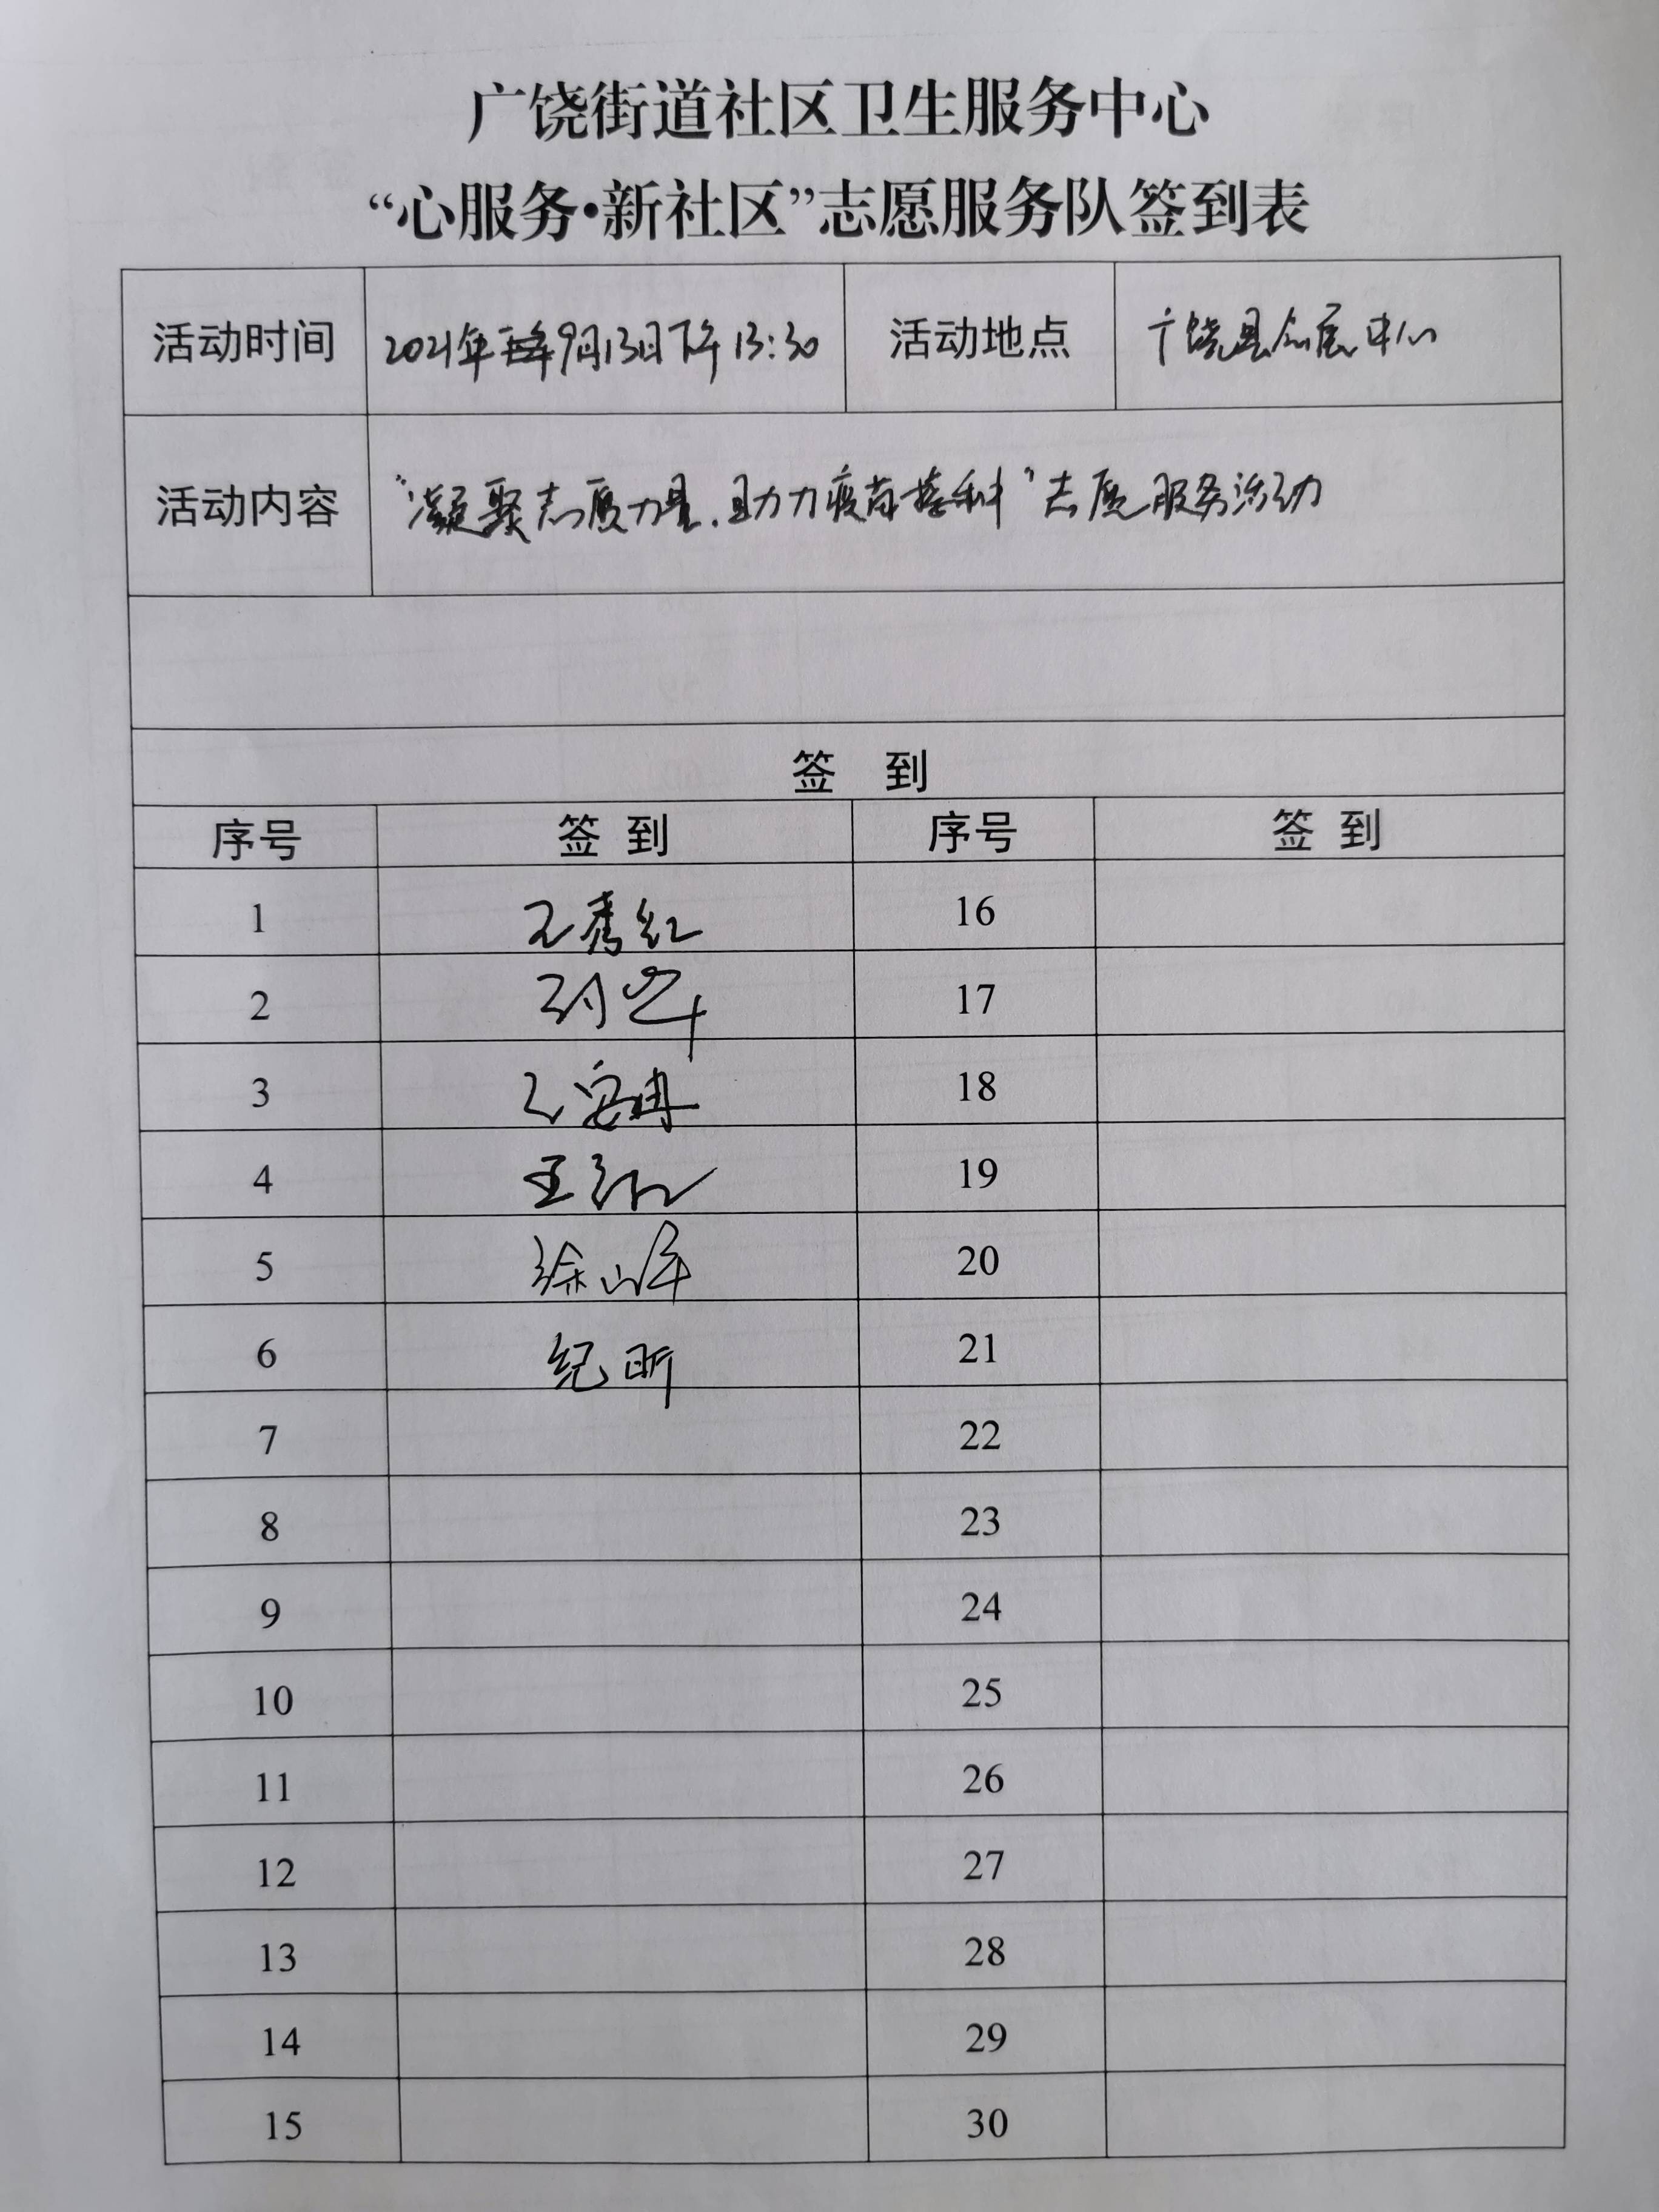 广饶街道社区卫生服务中心
“心服务·新社区”志愿服务队签到表
活动时间 2021年9月13日下午13:30 活动地点 广饶县会展中心
活动内容 “凝聚志愿力量.助力疫苗接种”志愿服务活动
签 到
序号 签到 序号 签到
1 王秀红 16
2 17
3 18
4 王 19
5 徐山军 20
6 纪昕 21
7 22
8 23
9 24
10 25
11 26
12 27
13 28
14 29
15 30